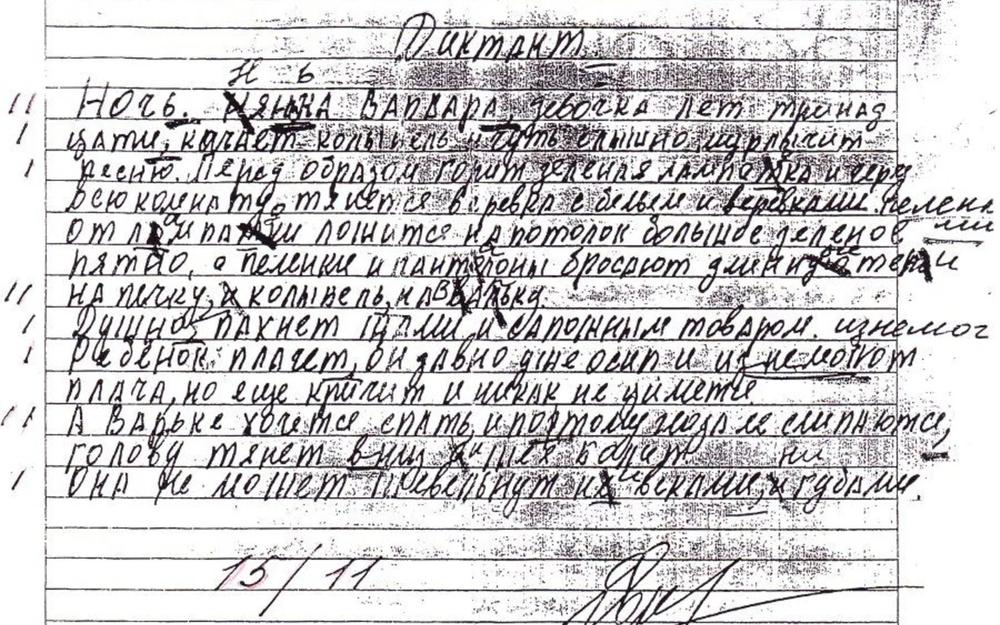 Диктант
н ь
Ночь. Нянька Варвара, девочка лет тринад
цати, качает колыбель и чуть слышно мурлычит
песню. Перед образом горит зеленая лампатка и через
всю комнату тянется веревка с белым и веревками. пеленк
от лампатки ложится на потолок большое зеленое ми
пятно, а пеленки и панталоны бросают длину тени
на печку, и колыбель, на Варька.
Душно, пахнет щами, и сапожным товаром. изнемог
Ребенок плачет, он давно уже осип и из немогот
плача, но еще кричит и никак не уимется
А Варьке хочется спать, и поэтому глаза ее слипаются,
голову тянет вниз шея болит ни
Она не может шевельнут ни веками, и губами.
15/11